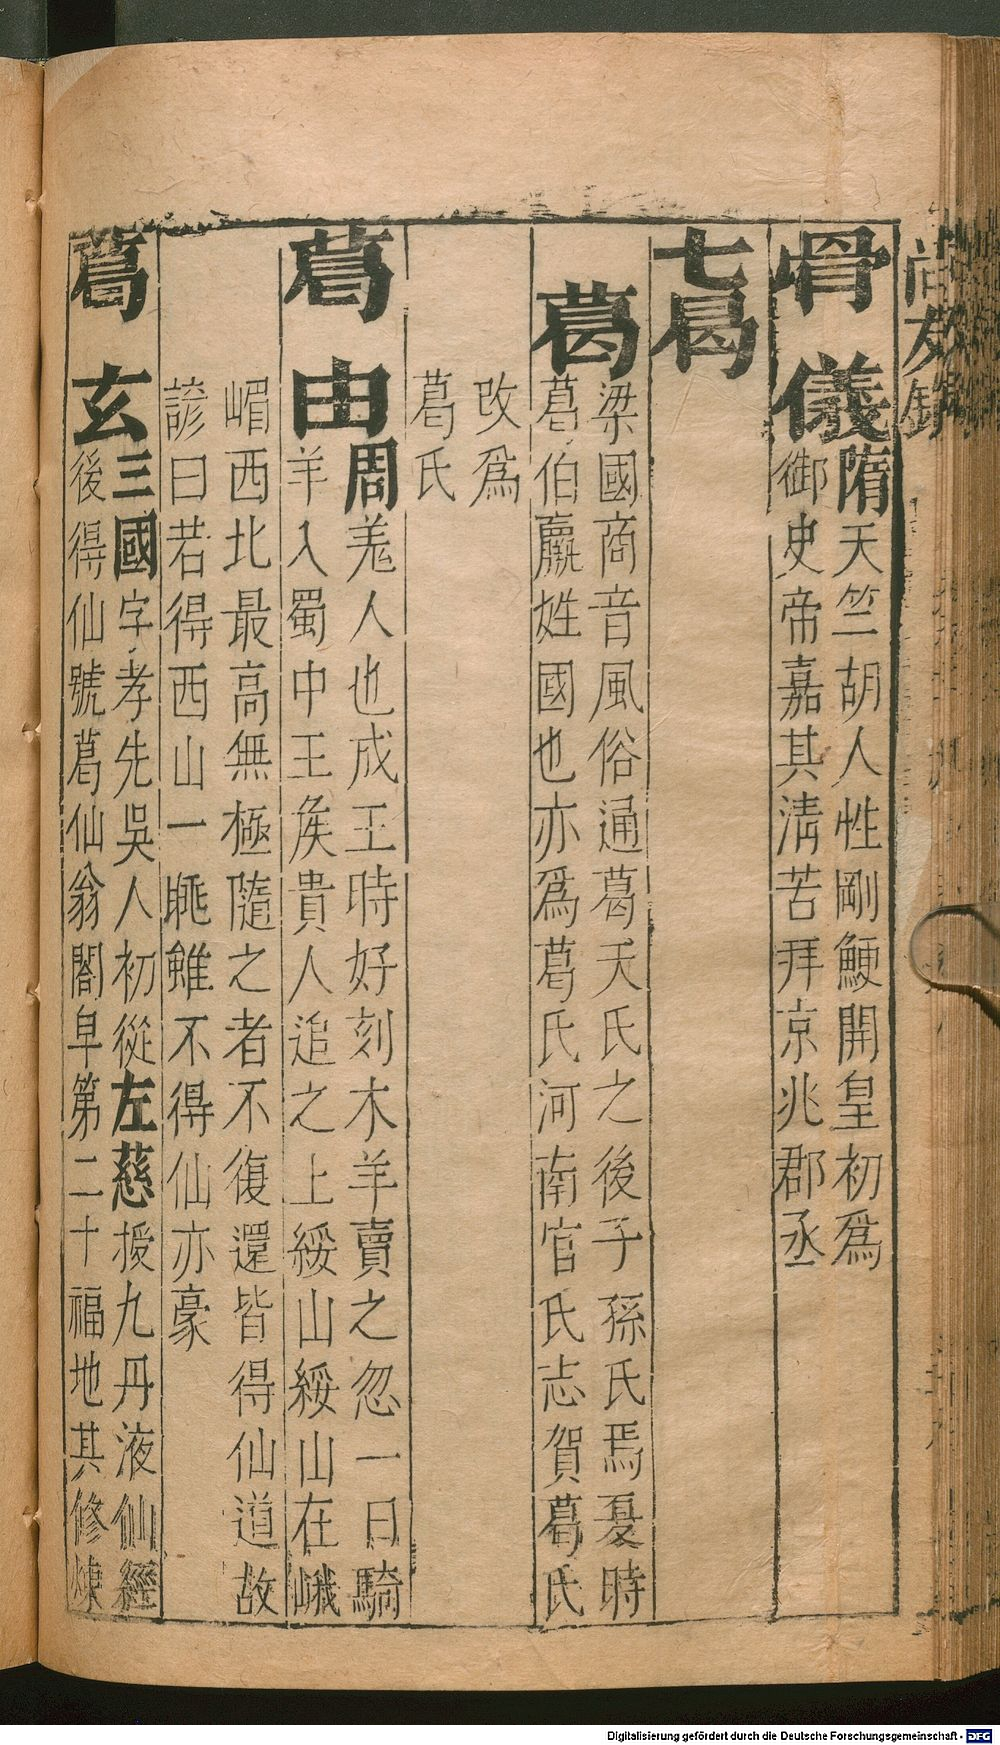 尚友錄
骨儀隋天竺胡人性剛鯁開皇初爲
御史帝嘉其淸苦拜京兆郡丞
七曷
葛梁國商音風俗通葛天氏之後子孫氏焉夏時
葛伯嬴姓國也亦爲葛氏河南官氏志賀葛氏
改爲
葛氏
葛由周羗人也成王時好刻木羊賣之忽一日騎
羊入蜀中王矦貴人追之上綏山綏山在峨
嵋西北最高無極隨之者不復還皆得仙道故
諺曰若得西山一䠷雖不得仙亦豪
葛玄三國字孝先吳人初從左慈授九丹液仙經
後得仙號葛仙翁閤皁第二十福地其修煉
Digitalisierung gefördert durch die Deutsche Forschungsgemeinschaft - DFG